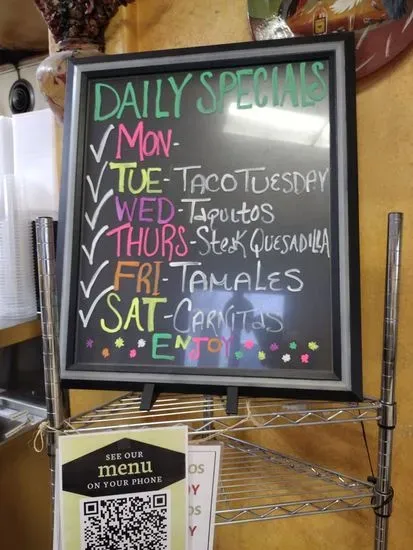 DAILY SPECIALS
✓ MON-
✓ TUE-TACO TUESDAY
✓ WED-Taquitos
✓ THURS-Steak QUESADILLA
✓ FRI-TAMALES
✓ SAT-CARNITAS
ENJOY
SEE OUR
menu
ON YOUR PHONE